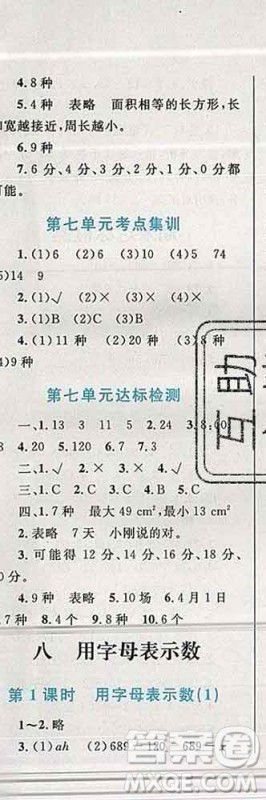 4.8 种
5.4 种 表略 面积相等的长方形,长
和宽越接近,周长越小。
6.9 种
7.6 分、4 分、3 分、2 分、1 分、0 分都
可能。
第七单元考点集训
1.(1)6 (2)6 (3)10 (4)5 74
(5)14 9
2.(1)√ (2)× (3)× (4)×
3.(1)B (2)C (3)A
4.(1)11 种 (2)4 种 (3)8 种
(4)9 种
第七单元达标检测
一、1.13 3 11 5 2.24 3.8:00
4.20 5.120 6.7 7.3
二、1.√ 2.× 3.× 4.√
三、1.C 2.C 3.A
四、1.7 种 最大 49 cm² 最小 13 cm²
2.表略 7 天 小刚说的对。
3.可能得 12 分、9 分、8 分、6 分、5
4.9 种 表略 5.10 场 6.4 月 1 日
7.14 种 8.4 个 9.8 种 10.6 个
八 用字母表示数
第 1 课时 用字母表示数(1)
1~2.略
3.(1)ah (2)689÷120 689÷x
互助
答案圈
MXQE.COM